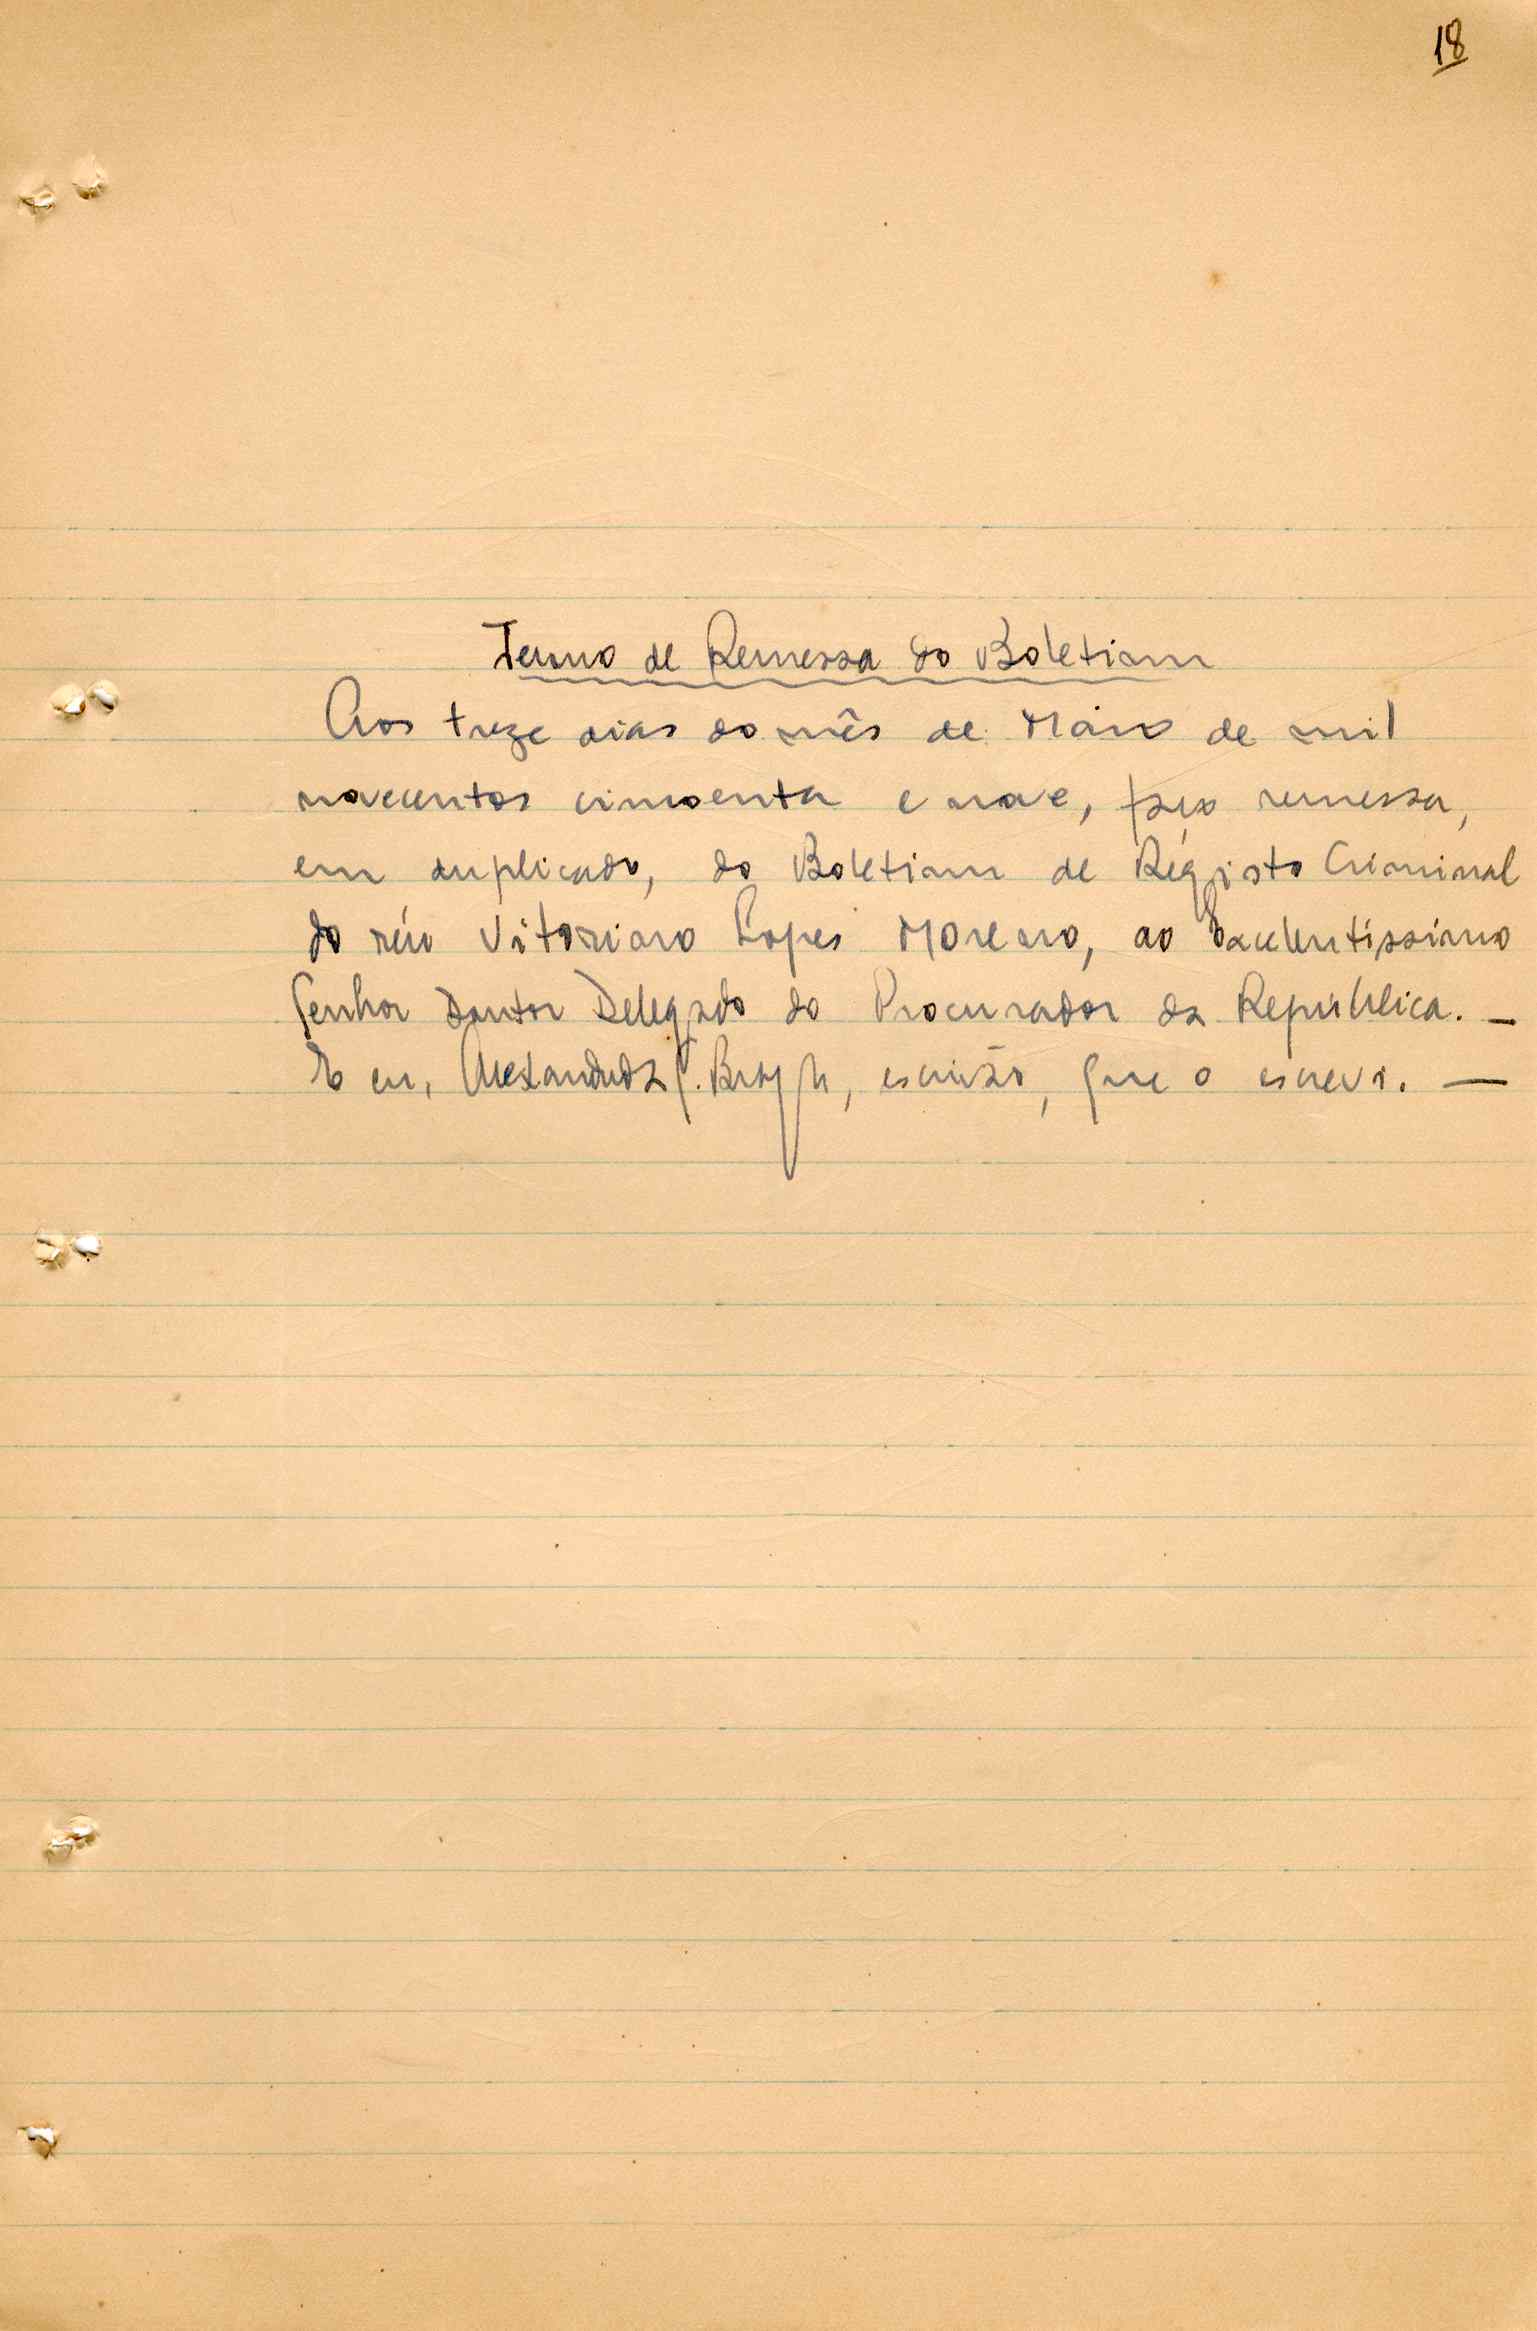 18
Termo de Remessa do Boletim
Aos treze dias do mês de Maio de mil
novecentos cincoenta e nove, faço remessa,
em duplicado, do Boletim de Régisto Criminal
do réu Vitoriano Lopes Moreno, ao Excelentíssimo
Senhor Doutor Delegado do Procurador da República. —
E eu, , escrivão, que o escrevi. —